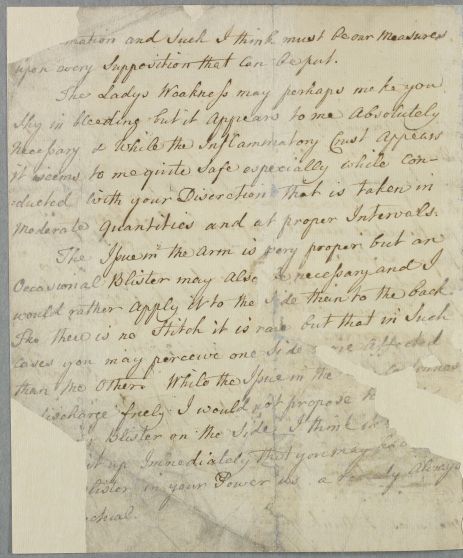 mation and Such I think must be our Measures
upon every Supposition that can be put.
The Ladys Weakness may perhaps make you
Shy in bleeding but it Appears to me Absolutely
Necessary & While the Inflammatory Crust Appears
it seems to me quite Safe especially while con-
ducted with your Discretion that is taken in
Moderate Quantities and at proper Intervals.
The Issue in the Arm is very proper but an
Occasional Blister may also be necessary and I
would rather Apply it to the Side than to the back
Tho there is no Stitch it is rare but that in Such
Cases you may perceive one Side more Affected
than the Other. While the Issue in the
discharge freely I would not propose
Blister on the Side I think
up Immediately that you may
Blister in your Power as a Always